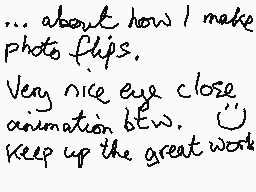 ... about how I make
photo flips.
Very nice eye close
animation btw. :)
Keep up the great work